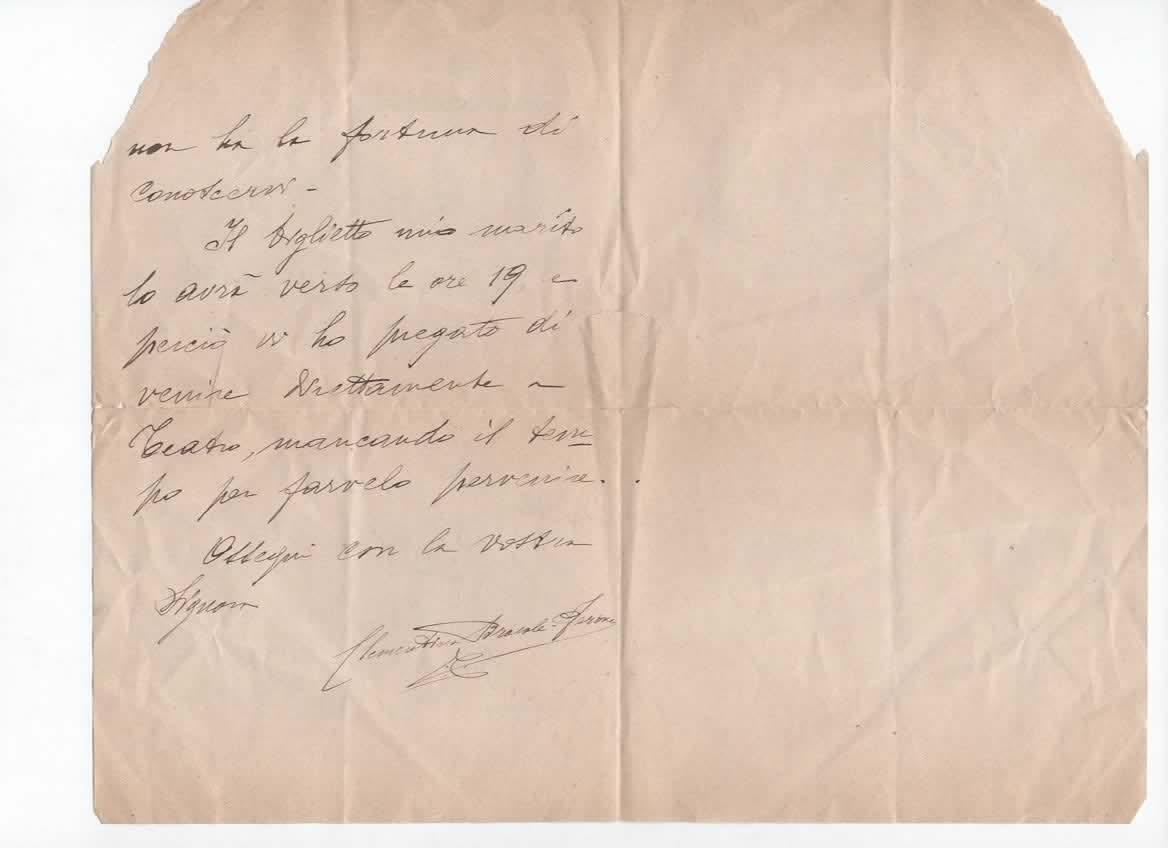 non ha la fortuna di
conoscervi -
Il biglietto mio marito
lo avrà verso le ore 19 e
perciò vi ho pregato di
venire direttamente a
Teatro, mancando il tem
po per farvelo pervenire. .
Ossequi con la vostra
Signora
Clementina